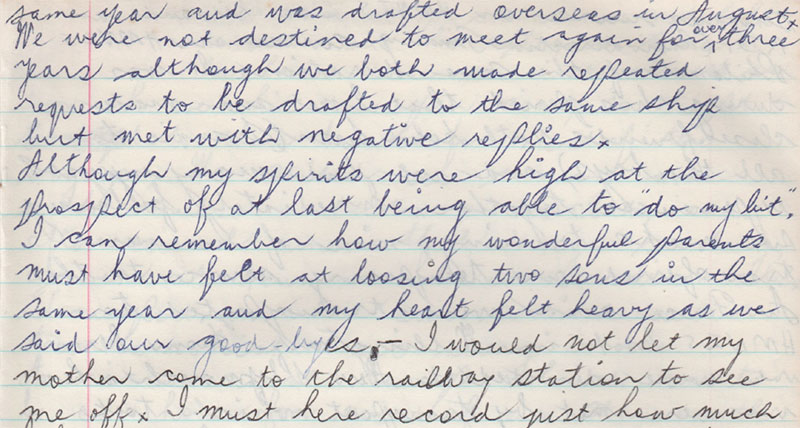 same year and was drafted overseas in August x
We were not destined to meet again for over three
years although we both made repeated
requests to be drafted to the same ship
but met with negative replies x
Although my spirits were high at the
prospect of at last being able to "do my bit",
I can remember how my wonderful parents
must have felt at loosing two sons in the
same year and my heart felt heavy as we
said our good-byes, – I would not let my
mother come to the railway station to see
me off x I must here record just how much